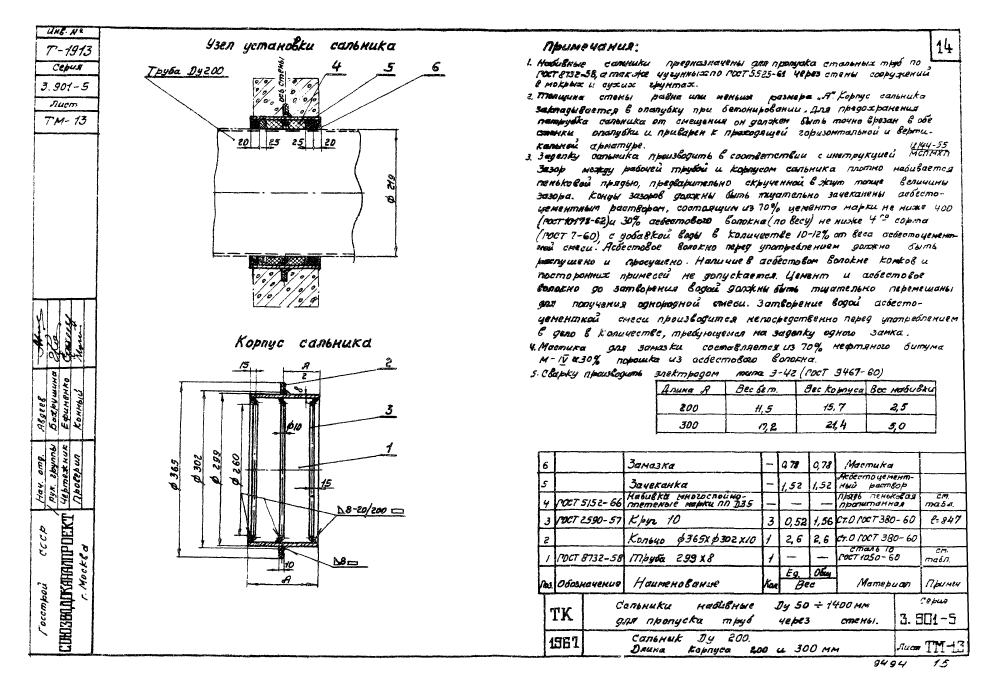 Инв. №
Т-1913
Серия
3.901-5
Лист
ТМ-13
Узел установки сальника
Труба Ду200
ось стены
4
5
6
20 25 25 20
ф 219
Корпус сальника
15
А
А/2
2
8
ф10
3
1
ф 365
ф 302
ф 299
ф 260
15
8-20/200
8
10
А
Примечания:
14
1. Набивные сальники предназначены для пропуска стальных труб по
ГОСТ 8732-58, а также чугунных по ГОСТ 5525-61 через стены сооружений
в мокрых и сухих грунтах.
2. Толщина стены равна или меньше размера „А" Корпус сальника
закладывается в опалубку при бетонировании. Для предохранения
патрубка сальника от смещения он должен быть точно врезан в обе
стенки опалубки и приварен к проходящей горизонтальной и верти-
кальной арматуре.
3. Заделку сальника производить в соответствии с инструкцией И144-55 МСПМХП
Зазор между рабочей трубой и корпусом сальника плотно набивается
пеньковой прядью, предварительно скрученной в жгут толще величины
зазора. Концы зазоров должны быть тщательно зачеканены асбесто-
цементным раствором, состоящим из 70% цемента марки не ниже 400
(ГОСТ 10178-62) и 30% асбестового волокна (по весу) не ниже 4го сорта
(ГОСТ 7-60) с добавкой воды в количестве 10-12% от веса асбестоцемент-
ной смеси. Асбестовое волокно перед употреблением должно быть
распушено и просушено. Наличие в асбестовом волокне комков и
посторонних примесей не допускается. Цемент и асбестовое
волокно до затворения водой должны быть тщательно перемешаны
для получения однородной смеси. Затворение водой асбесто-
цементной смеси производится непосредственно перед употреблением
в дело в количестве, требующемся на заделку одного замка.
4. Мастика для замазки составляется из 70% нефтяного битума
М-IV и 30% порошка из асбестового волокна.
5. Сварку производить электродом типа Э-42 (ГОСТ 9467-60)
Длина А Вес бет. Вес корпуса Вес набивки
200 11,5 15,7 2,5
300 17,2 21,4 5,0
6 Замазка — 0,78 0,78 Мастика
5 Зачеканка — 1,52 1,52 Асбестоцемент-ный раствор
4 ГОСТ 5152-66 Набивка многослойно-плетеные марки ПП D35 — — — Прядь пеньковая пропитанная см. табл.
3 ГОСТ 2590-57 Круг 10 3 0,52 1,56 Ст.0 ГОСТ 380-60 ℓ=847
2 Кольцо ф365хф302х10 1 2,6 2,6 Ст.0 ГОСТ 380-60
1 ГОСТ 8732-58 Труба 299х8 1 — — Сталь 10 ГОСТ 1050-60 см. табл.
Поз. Обозначение Наименование Кол. Ед. Общ. Вес Материал Примеч
ТК
Сальники набивные Ду 50÷1400мм
для пропуска труб через стены.
Серия
3.901-5
1967
Сальник Ду 200.
Длина корпуса 200 и 300 мм
Лист ТМ-13
9494 15
Нач. отд. Авдеев
Рук. группы Бахрушина
Чертежник Ефименко
Проверил Конный
Госстрой СССР
СОЮЗВОДОКАНАЛПРОЕКТ
г. Москва